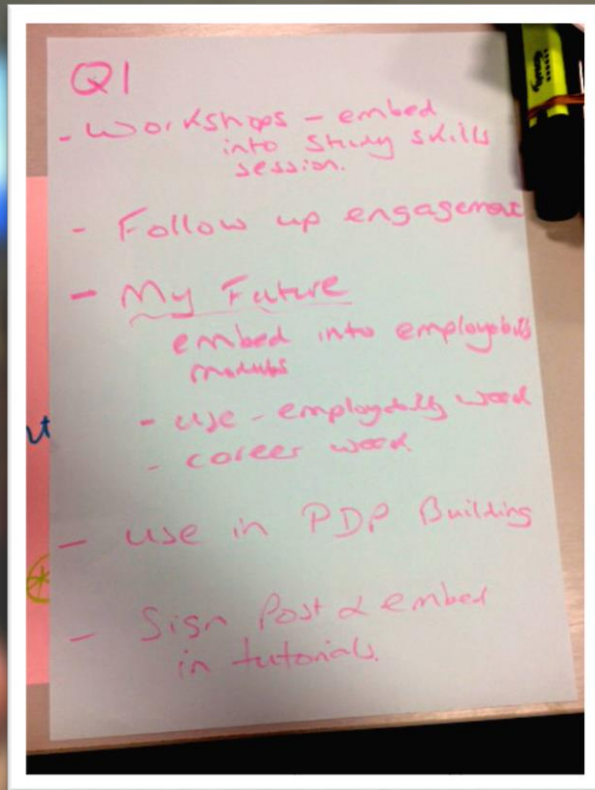 Q1
- Workshops - embed
into study skills
session.
- Follow up engagement
- My Future
embed into employabili
modules
- use - employability week
- career week
- use in PDP Building
- Sign Post & embed
in tutorials.